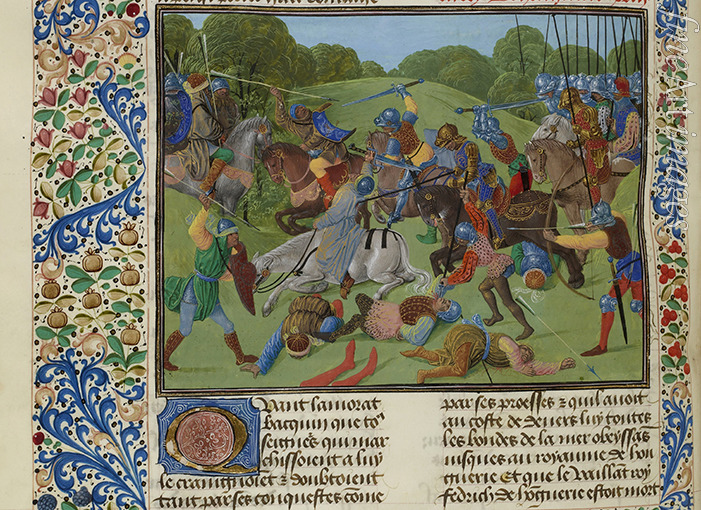 Quant lamorat
bacquin que to⁹
seigne⁹ qui mar
chissoient a luy
le craingnoiet z doubtoient
tant par ses conquestes cõme
par ses proesses z quil auoit
au coste de deuers luy toutes
les bondes de la mer obeyssãs
iusques au royaume de hon
guerie Et que le vaillãt roy
fedrich de hõguerie estoit mort